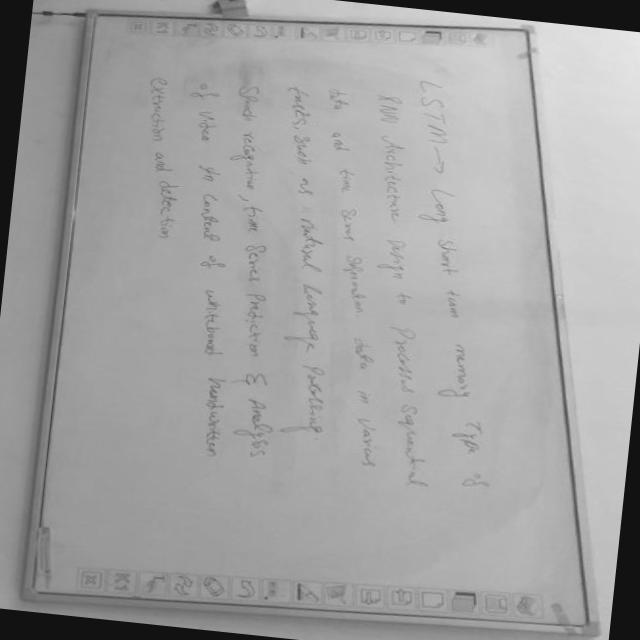 LSTM → Long short term memory Type of
RNN Architecture Design to Processed Sequential
data and time Series Sequential data in various
tasks. Such as natural language Processing
Speech recognition, time Series Prediction & Analysis
of Video by Content of whiteboard handwritten
extraction and detection